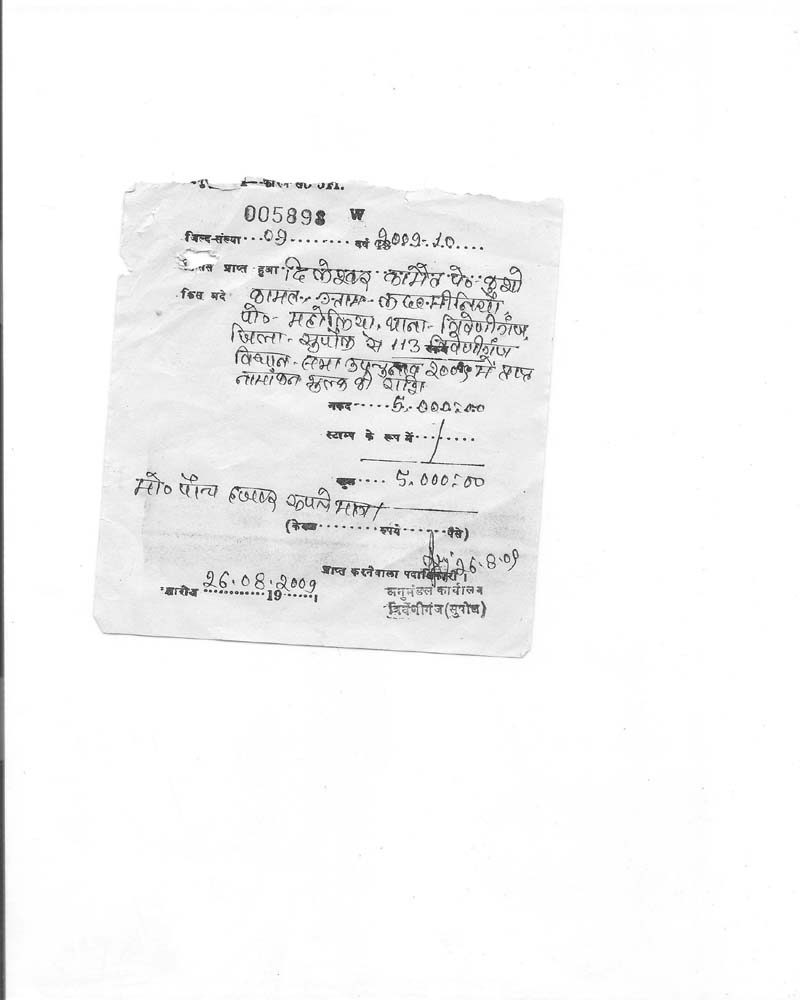 005898 W
जिल्द-संख्या...09......... वर्ष 2009-10....
प्राप्त हुआ दिलेश्वर कामैत पे०
किस मदे कामत,
पो०- थाना- त्रिवेणीगंज,
जिला- सुपौल से 113 त्रिवेणीगंज
विधान-सभा उपचुनाव 2009 में प्राप्त
नामांकन शुल्क की राशि
नकद ..... 5,000=00
स्टाम्प के रूप में.../....
कुल .... 5,000=00
मो० पाँच हजार रूपये मात्र।
(केवल ........ रुपये ........ पैसे)
26.8.09
प्राप्त करनेवाला पदाधिकारी।
तारीख 26.08.2009 19 ......।
अनुमंडल कार्यालय
त्रिवेणीगंज (सुपौल)